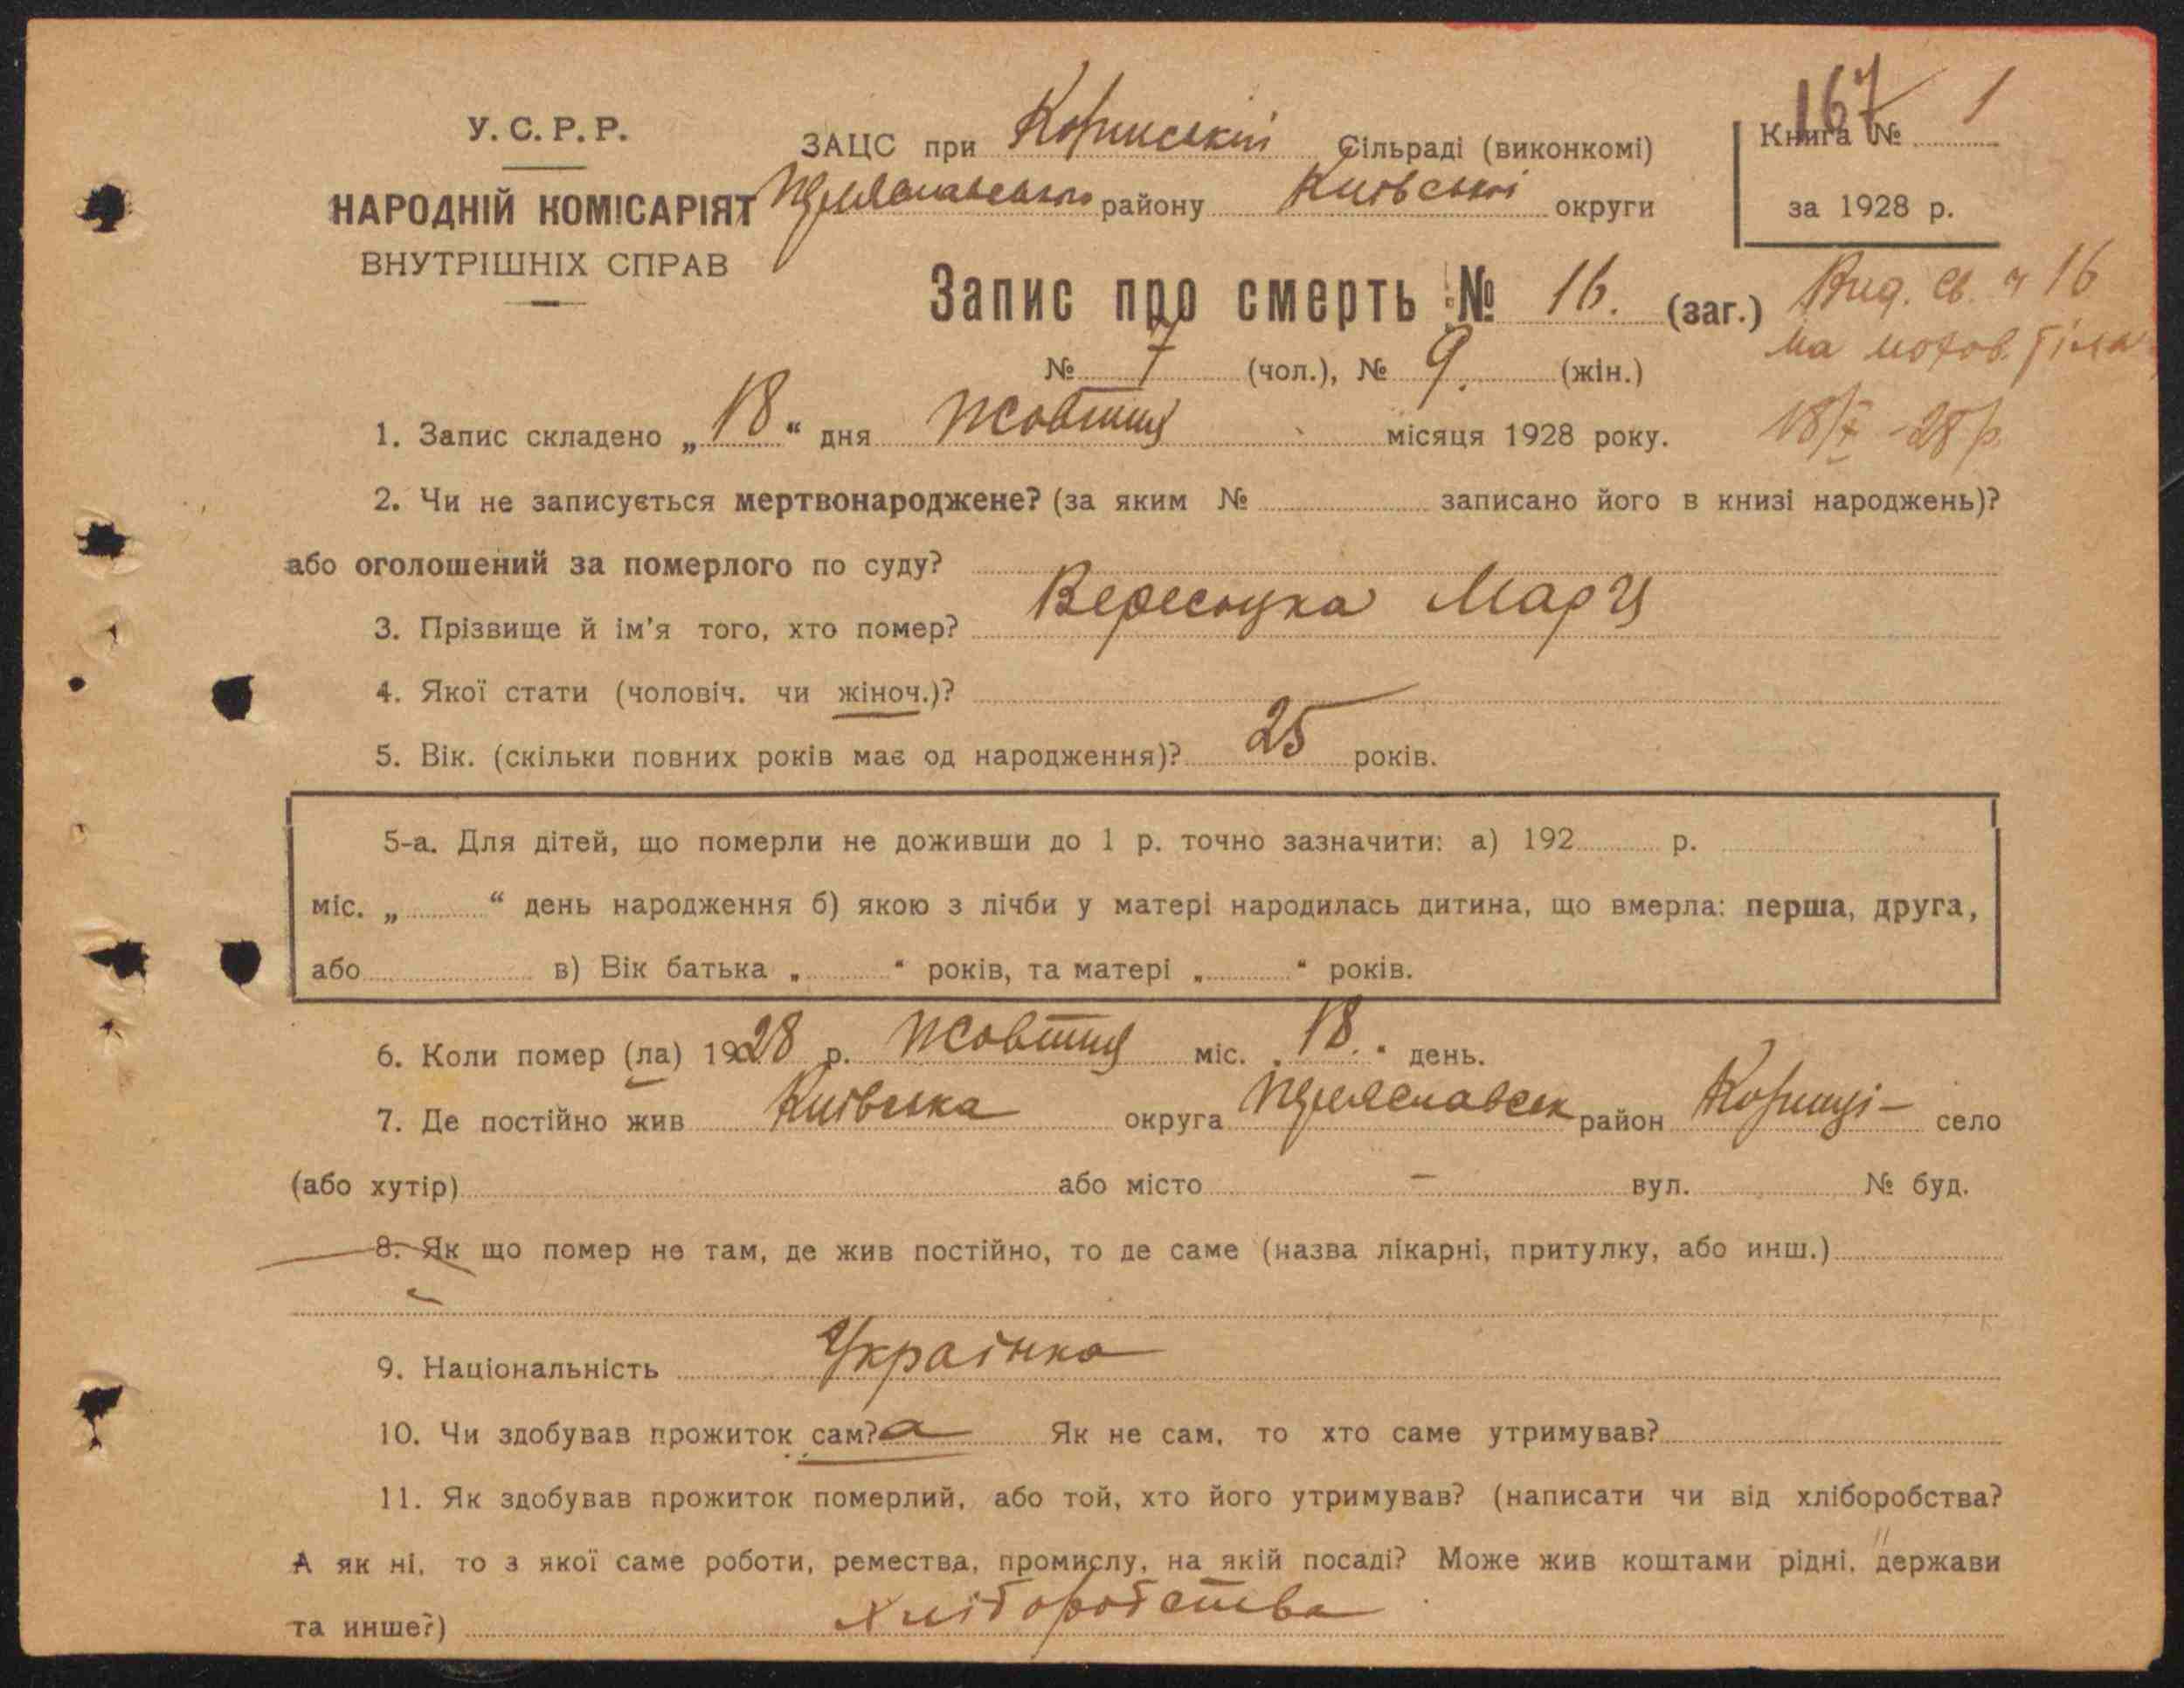 167 1
У. С. Р. Р.
НАРОДНІЙ КОМІСАРІЯТ
ВНУТРІШНІХ СПРАВ
ЗАЦС при Сільраді (виконкомі)
району Київської округи
Книга №
за 1928 р.
Запис про смерть № 16. (заг.)
Вид. св. ч 16
на похов. тіла
18/X -28 р.
№ 7 (чол.), № 9. (жін.)
1. Запис складено „ 18 “ дня Жовтня місяця 1928 року.
2. Чи не записується мертвонароджене? (за яким № записано його в книзі народжень)?
або оголошений за померлого по суду?
3. Прізвище й ім'я того, хто помер? Марія
4. Якої стати (чоловіч. чи жіноч.)?
5. Вік. (скільки повних років має од народження)? 25 років.
5-а. Для дітей, що померли не доживши до 1 р. точно зазначити: а) 192 р.
міс. „ “ день народження б) якою з лічби у матері народилась дитина, що вмерла: перша, друга,
або в) Вік батька „ “ років, та матері „ “ років.
6. Коли помер (ла) 1928 р. Жовтня міс. „ 18. “ день.
7. Де постійно жив Київська округа Переяславськ район село
(або хутір) або місто – вул. № буд.
8. Як що помер не там, де жив постійно, то де саме (назва лікарні, притулку, або инш.)
9. Національність Українка
10. Чи здобував прожиток сам? а Як не сам, то хто саме утримував?
11. Як здобував прожиток померлий, або той, хто його утримував? (написати чи від хліборобства?
А як ні, то з якої саме роботи, ремества, промислу, на якій посаді? Може жив коштами рідні, держави
та инше?) Хліборобства